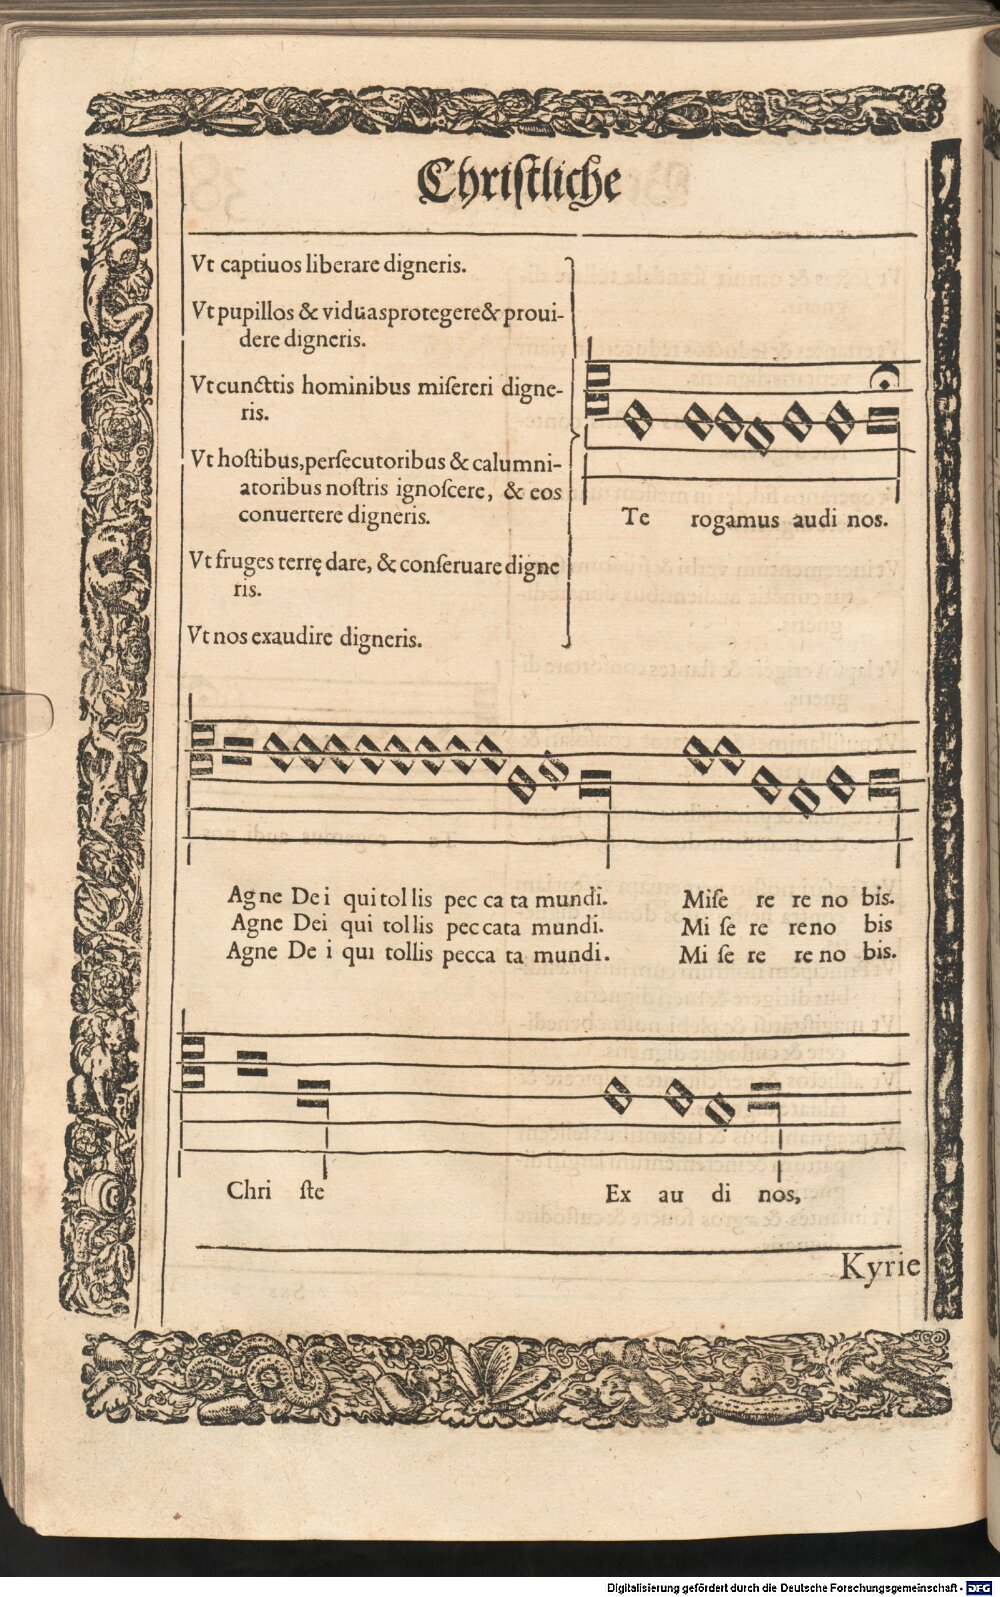 Chriſtliche
Vt captiuos liberare digneris.
Vt pupillos & viduasprotegere& proui-
dere digneris.
Vt cuncttis hominibus miſereri digne-
ris.
Vt hoſtibus,perſecutoribus & calumni-
atoribus noſtris ignoſcere, & eos
conuertere digneris.
Vt fruges terrę dare, & conſeruare digne
ris.
Vt nos exaudire digneris.
Te rogamus audi nos.
Agne Dei qui tol lis pec ca ta mundi. Miſe re re no bis.
Agne Dei qui tollis peccata mundi. Mi ſe re reno bis
Agne De i qui tollis pecca ta mundi. Mi ſe re re no bis.
Chri ſte Ex au di nos,
Kyrie
Digitalisierung gefördert durch die Deutsche Forschungsgemeinschaft - DFG